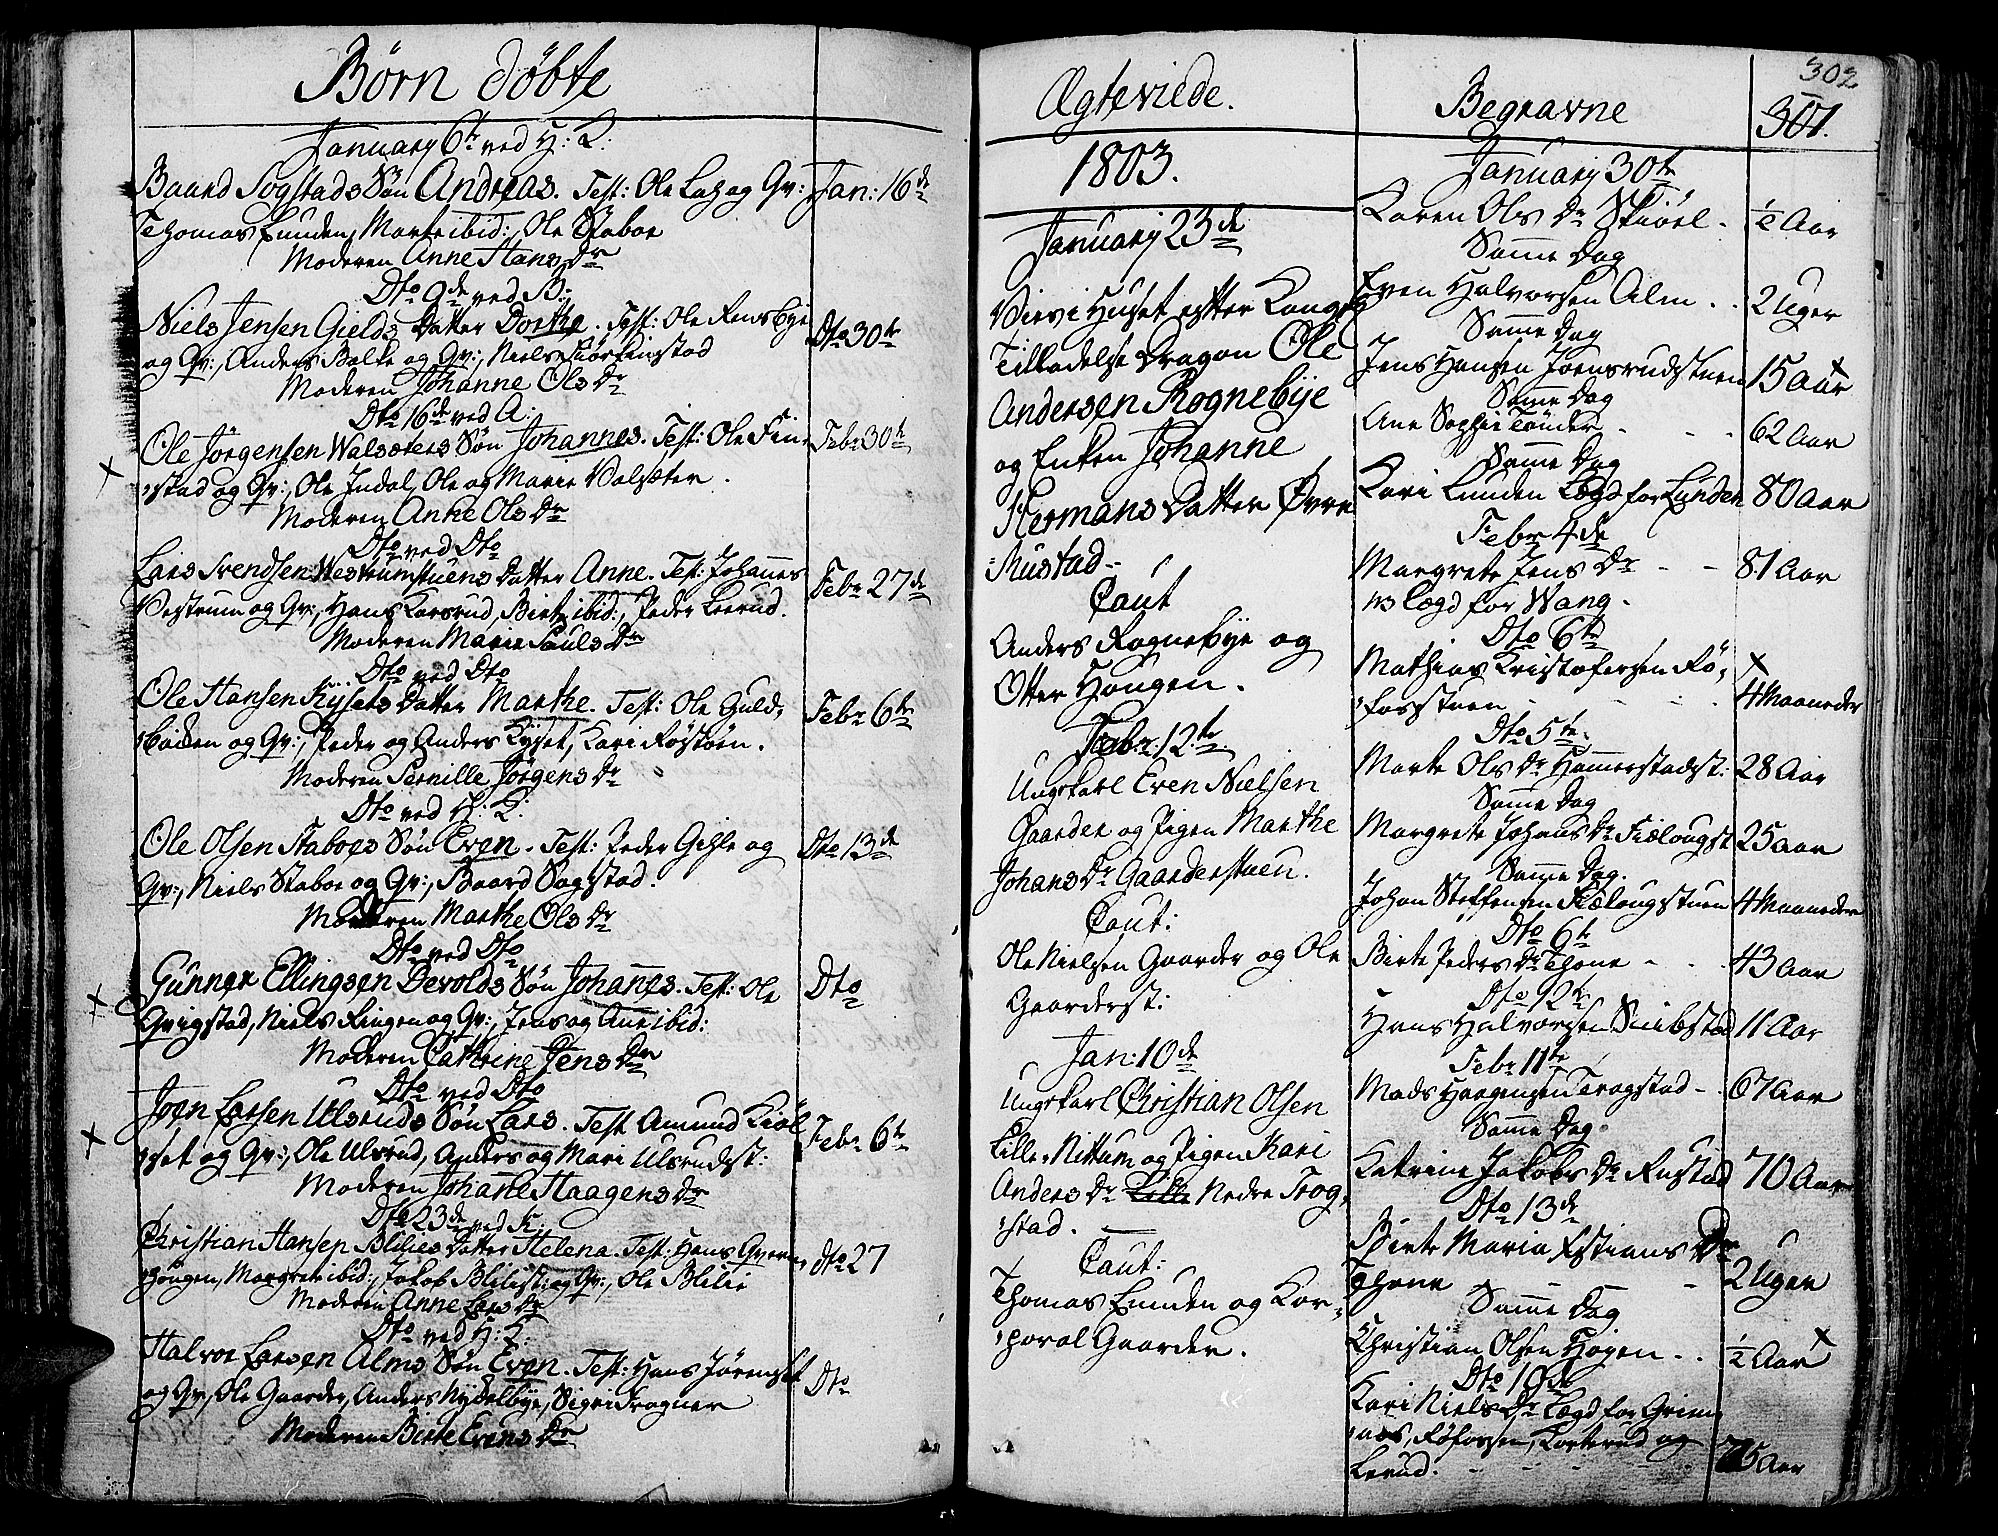 Børn døbte
January 6te ved H: K:
Baard Sogstads Søn Andreas. Test: Ole Lah og Qv: Jan: 16de
Thomas Lunden, Marte ibid:, Ole Staboe
Moderen Anne Hans Dr
Dto 9de ved B:
Niels Jensen Gields Datter Dorthe. Test: Ole Rensbye Dto 30te
og Qv:, Anders Balke og Qv:, Niels
Moderen Johanne Ols Dr
Dto 16de ved A:
Ole Jörgensen Walsæters Søn Johannes. Test: Ole Fin- Febr 30te
stad og Qv:, Ole Indal, Ole og Marie Valsæter.
Moderen Anne Ols Dr
Dto ved Dto
Lars Svendsen Westrumstuens Datter Anne. Test: Johannes Febr 27de
Vestrum og Qv:, Hans Karsrud, Birte ibid:, Peder Leerud.
Moderen Marie Pauls Dr
Dto ved Dto
Ole Hansen Kysets Datter Marthe. Test: Ole Guld- Febr 6te
og Qv:, Peder og Anders Kyset, Kari Røstøen.
Moderen Pernille Jørgens Dr
Dto ved H: K:
Ole Olsen Staboes Søn Even. Test: Peder Gihle og Dto 13de
Qv:, Niels Staboe og Qv:, Baard Sogstad.
Moderen Marthe Ols Dr
Dto ved Dto
Gunner Ellingsen Devolds Søn Johannes. Test: Ole Dto
Qvigstad, Niels Ringen og Qv:, Jens og Anne ibid:
Moderen Cathrine Jens Dr
Dto ved Dto
Joen Larsen Ulsruds Søn Lars. Test Amund Kiøl- Febr 6te
set og Qv:, Ole Ulsrud, Anders og Mari Ulsrudst:
Moderen Johanne Haagens Dr
Dto 23de ved K:
Christian Hansen Blilies Datter Helena. Test: Hans Qvern- Dto 27
hougen, Margrete ibid:, Jakob Blilist: og Qv:, Ole Blilie
Moderen Anne Lars Dr
Dto ved H: K:
Halvor Larsen Alms Søn Even. Test: Hans Jørenst Dto
og Qv:, Ole Gaarder, Anders Nydelbye, Sigri Fragner
Moderen Birte Evens Dr
Ægteviede.
1803.
January 23de
Viet i Huset efter Kongel
Tilladelse Dragon Ole
Andersen Rognebye
og Enken Johanne
Hermans Datter Øvre
Rustad-
Caut
Anders Rognebye og
Otter Hougen.
Febr: 12te
Ungkarl Even Nielsen
Gaarder og Pigen Marthe
Johans Dr Gaarderstuen.
Caut:
Ole Nielsen Gaarder og Ole
Gaarderst:
Jan: 10de
Ungkarl Christian Olsen
Lille-Nittum og Pigen Kari
Anders Dr Lille Nedre Frog-
stad.
Caut:
Thomas Lunden og Kor-
poral Gaarder.
302
301.
Begravne
January 30te
Karen Ols Dr Skiøel - ½ Aar
Samme Dag
Even Halvorsen Alm.. 2 Uger
Samme Dag
Jens Hansen Joensrudstuen 15 Aar
Samme Dag
Ane Sophie Tønder - - - 62 Aar
Samme Dag
Kari Lunden Lægd for Lunden 80 Aar
Febr 4de
Margrete Jens Dr - - 81 Aar
Lægd for Wang.
Dto 6te
Mathias Kristofersen Rø-
fosstuen - - - 4 Maaneder
Dto 5te
Marte Ols Dr Hammerstadst: 28 Aar
Samme Dag
Margrete Johans Dr Fiælougst 25 Aar
Samme Dag.
Johan Steffensen Fiælougstuen 4 Maaneder
Dto 6te
Birte Peders Dr Thone - - 43 Aar
Dto 12te
Hans Halvorsen Snibstad 11 Aar
Febr 11te
Mads Haagensen Frogstad - . 67 Aar
Samme Dag.
Katrine Jakobs Dr Rustad 70 Aar
Dto 13de
Birte Maria Estians Dr
Thone - 2 Uger
Samme Dag
Christian Olsen Høgen - . ½ Aar
Dto
Kari Niels Dr Lægd for Grim-
næs, Røfossen, Korterud og
Lerud. - - - - 75 Aar